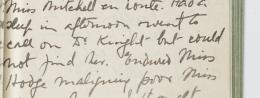 Miss Mitchell en route. Had a
sleep in afternoon & went to
call on Dr Knight but could
not find her. Endured Miss
Hodge maligning poor Miss